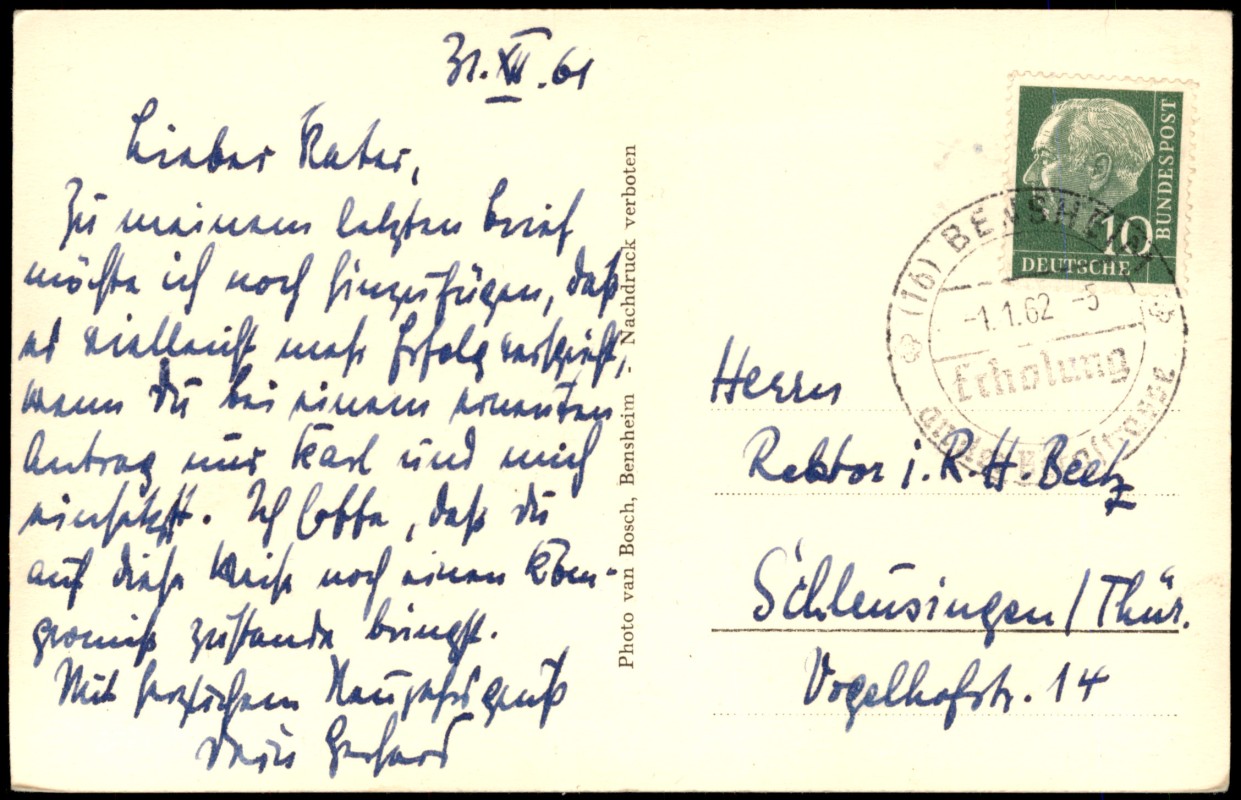 31.XII.61
Lieber Vater,
Zu meinem letzten Brief
möchte ich noch hinzufügen, daß
es vielleicht mehr Erfolg verspricht,
wenn Du bei einem erneuten
Antrag nur Karl und mich
einsetzst. Ich hoffe, daß du
auf diese Weise noch einen Kom-
promiß zustande bringst.
Mit herzlichem Neujahrsgruß
Dein Gerhard
Photo van Bosch, Bensheim - Nachdruck verboten
DEUTSCHE
BUNDESPOST
10
(16) BENSHEIM
-1.1.62 -5
Erholung
an der Bergstraße
Herrn
Rektor i.R. H. Beetz
Schleusingen/Thür.
Vogelhofstr. 14